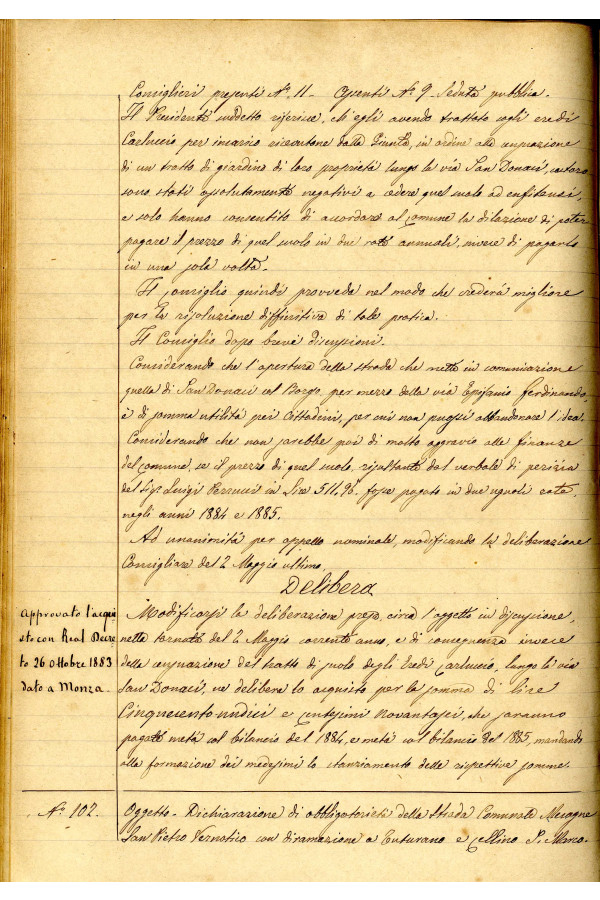 Consiglieri presenti N.° 11 - Assenti N.° 9 - Seduta pubblica -
Il Presidente suddetto riferisce, ch'egli avendo trattato cogli eredi
Carluccio, per incarico ricevutone dalla Giunta, in ordine alla censuazione
di un tratto di giardino di loro proprietà lungo la via San Donaci, costoro
sono stati assolutamente negativi a cedere quel suolo ad enfiteusi,
e solo hanno consentito di accordare al comune la dilazione di poter
pagare il prezzo di quel suolo in due rate annuali, invece di pagarlo
in una sola volta -
Il consiglio quindi provveda nel modo che crederà migliore
per la risoluzione diffinitiva di tale pratica.
Il Consiglio dopo brevi discussioni.
Considerando che l'apertura della strada che mette in comunicazione
quella di San Donaci col Borgo, per mezzo della via Epifanio Ferdinando,
è di somma utilità pei Cittadini, per cui non puossi abbandonare l'idea.
Considerando che non sarebbe poi di molto aggravio alle finanze
del comune, se il prezzo di quel suolo, risultante dal verbale di perizia
del Sig.r Luigi in Lire 511.96. fosse pagato in due uguali rate,
negli anni 1884 e 1885.
Ad unanimità per appello nominale, modificando la deliberazione
Consigliare del 2 Maggio ultimo,
Delibera
Approvato l'acqui
sto con Real Decre
to 26 Ottobre 1883
dato a Monza -
Modificarsi la deliberazione presa, circa l'oggetto in discussione,
nella tornata del 2 Maggio corrente anno, e di conseguenza invece
della censuazione del tratto di suolo degli Eredi Carluccio, lungo la via
San Donaci, ne delibera lo acquisto per la somma di lire
Cinquecentoundici e centesimi Novantasei, che saranno
pagate metà col bilancio del 1884, e metà col bilancio del 1885, mandando
alla formazione dei medesimi lo stanziamento delle rispettive somme.
N.° 102.
Oggetto - Dichiarazione di obbligatorietà della Strada Comunale Mesagne
San Pietro Vernotico con diramazione a Tuturano e Cellino S. Marco.